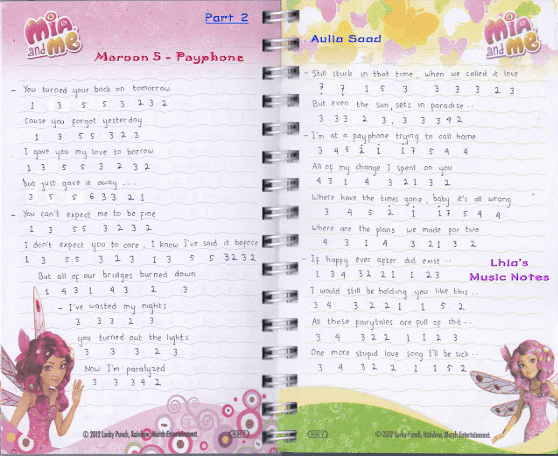 Mia and me
Part 2
Maroon 5 - Payphone
- You turned your back on tomorrow
1 3 5 5 3 2 3 2
Cause you forgot yesterday
1 3 5 5 3 2 3
I gave you my love to borrow
1 3 5 5 3 2 3 2
But just gave it away ...
3 5 5 6 3 3 2 1
- You can't expect me to be fine
1 3 5 5 3 2 3 2
I don't expect you to care, I know I've said it before
1 3 5 5 3 2 3 1 3 5 5 3 2 3 2
But all of our bridges burned down
1 4 3 1 4 3 2 3
- I've wasted my nights
3 3 3 2 3
you turned out the lights
3 3 3 2 3
Now I'm paralyzed
3 3 3 4 2
© 2012 Lucky Punch, Rainbow, March Entertainment.
KKY
Mia and me
Aulia Saad
- Still stuck in that time, when we called it love
7 7 1 5 3 3 3 3 2 3
But even the sun sets in paradise..
3 3 3 2 3, 3 3 3 4 2
- I'm at a payphone trying to call home
3 4 5 2 1 1 7 5 4 4
All of my change I spent on you
4 3 1 4 3 2 1 3 2
Where have the times gone, baby it's all wrong
3 4 5 2 1 1 7 5 4 4
Where are the plans we made for two
4 3 1 4 3 2 1 3 2
- If happy ever after did exist..
1 3 4 3 2 2 1 1 2 3
I would still be holding you like this..
3 4 3 2 2 1 1 5 2
All those fairytales are full of shit..
3 4 3 2 2 1 1 2 3
One more stupid love song I'll be sick..
3 4 3 2 2 1 1 5 2
Lhia's
Music Notes
KKY
© 2012 Lucky Punch, Rainbow, March Entertainment.